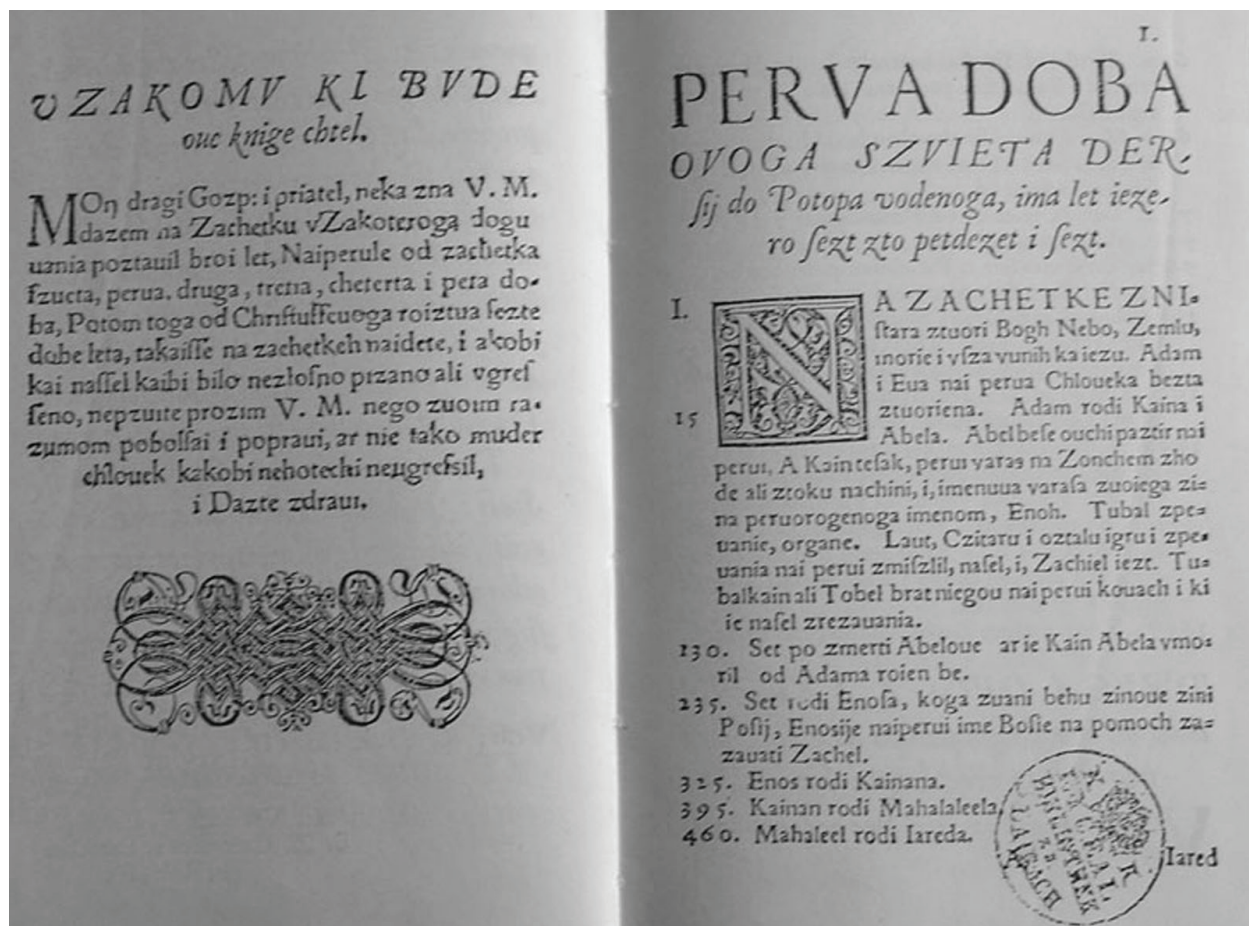 VZAKOMV KI BVDE
oue knige chtel.
MOŋ dragi Gozp: i priatel, neka zna V. M.
dazem na Zachetku vZakoteroga dogu
uania poztauil broi let, Naiperule od zachetka
ſzueta, perua, druga, tretia, cheterta i peta do-
ba, Potom toga od Chriſtuſſeuoga roiztua ſezte
dobe leta, takaiſſe na zachetkeh naidete, i akobi
kai naſſel kaibi bilo nezloſno pizano ali vgreſ
ſeno, nepzuite prozim V. M. nego zuoim ra-
zumom pobolſai i popraui, ar nie tako muder
chlouek kakobi nehotechi neugreſsil,
i Dazte zdraui.
I.
PERVA DOBA
OVOGA SZVIETA DER,
ſij do Potopa vodenoga, ima let ieze-
ro ſezt zto petdezet i ſezt.
I. NA ZACHETKE ZNI-
ſtara ztuori Bogh Nebo, Zemlu,
morie i vſza vunih ka iezu. Adam
i Eua nai perua Chloueka bezta
15 ztuoriena. Adam rodi Kaina i
Abela. Abel beſe ouchi paztir nai
perui, A Kain teſak, perui varas na Zonchem zho
de ali ztoku nachini, i, imenuua varaſa zuoiega zi=
na peruorogenoga imenom, Enoh. Tubal zpe=
uanie, organe. Laut, Czitaru i oztalu igru i zpe=
uania nai perui zmiſzlil, naſel, i, Zachiel iezt. Tu=
balkain ali Tobel brat niegou nai perui kouach i ki
ie naſel zrezauania.
130. Set po zmerti Abeloue ar ie Kain Abela vmo=
ril od Adama roien be.
235. Set rodi Enoſa, koga zuani behu zinoue zini
Poſij, Enosije naiperui ime Boſie na pomoch za=
zauati Zachel.
325. Enos rodi Kainana.
395. Kainan rodi Mahalaleela,
460. Mahaleel rodi Iareda.
Iared
BIBLIOTHEK
ZU
LAIBACH